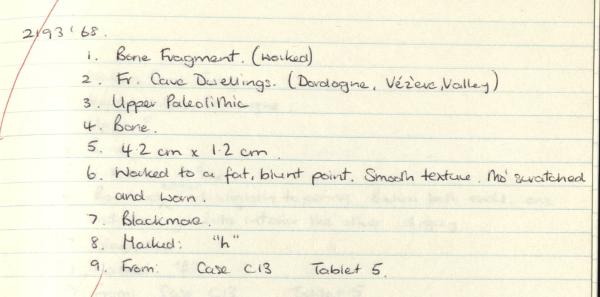 2193'68.
1. Bone Fragment. (worked)
2. Fr. Cave Dwellings. (Dordogne, Vézère, Valley)
3. Upper Paleolithic
4. Bone.
5. 4.2 cm x 1.2 cm.
6. Worked to a fat, blunt point. Smooth texture. Tho' scratched
and worn.
7. Blackmore.
8. Marked: "h"
9. From: Case C13 Tablet 5.